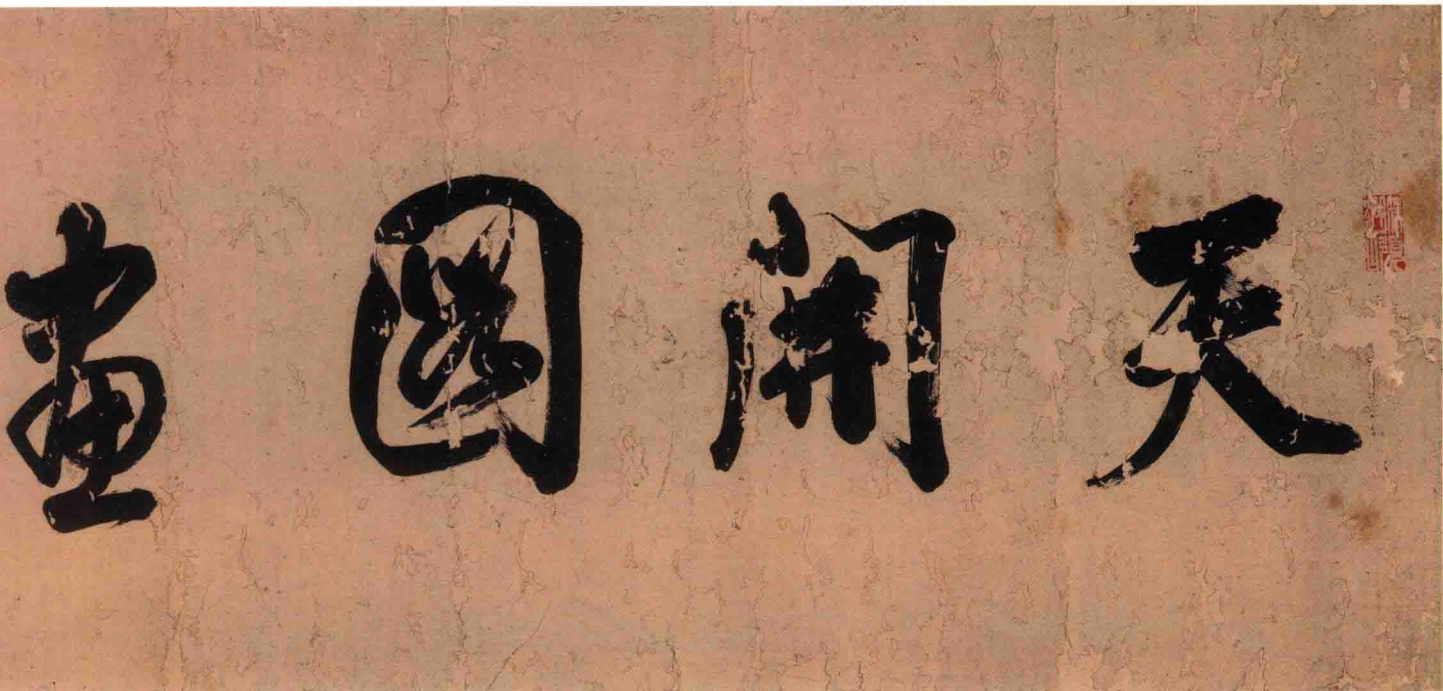 天開圖畫